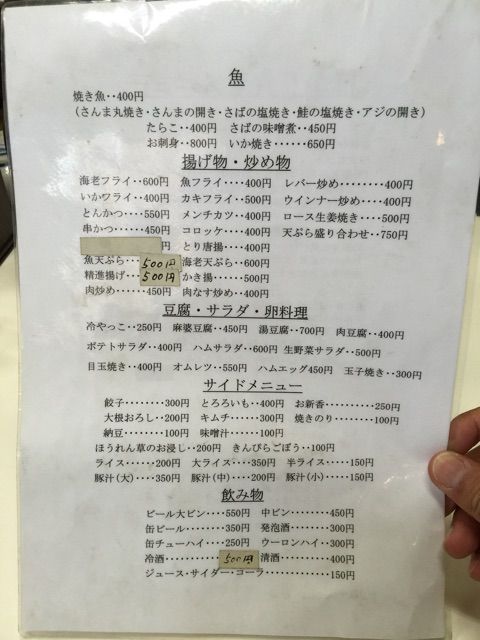 魚
焼き魚‥400円
(さんま丸焼き・さんまの開き・さばの塩焼き・鮭の塩焼き・アジの開き)
たらこ‥400円 さばの味噌煮‥450円
お刺身‥800円 いか焼き‥‥‥650円
揚げ物・炒め物
海老フライ‥600円 魚フライ‥‥400円 レバー炒め‥‥‥‥400円
いかフライ‥400円 カキフライ‥500円 ウインナー炒め‥‥400円
とんかつ‥‥550円 メンチカツ‥400円 ロース生姜焼き‥‥500円
串かつ‥‥‥450円 コロッケ‥‥400円 天ぷら盛り合わせ‥750円
円 とり唐揚‥‥400円
魚天ぷら‥500円 海老天ぷら‥600円
精進揚げ‥500円 かき揚‥‥‥500円
肉炒め‥‥‥450円 肉なす炒め‥400円
豆腐・サラダ・卵料理
冷やっこ‥250円 麻婆豆腐‥450円 湯豆腐‥700円 肉豆腐‥400円
ポテトサラダ‥400円 ハムサラダ‥600円 生野菜サラダ‥500円
目玉焼き‥400円 オムレツ‥550円 ハムエッグ450円 玉子焼き‥300円
サイドメニュー
餃子‥‥‥‥300円 とろろいも‥400円 お新香‥‥‥‥‥250円
大根おろし‥200円 キムチ‥‥‥300円 焼きのり‥‥‥‥100円
納豆‥‥‥‥100円 味噌汁‥‥‥100円
ほうれん草のお浸し‥200円 きんぴらごぼう‥100円
ライス‥‥‥200円 大ライス‥‥350円 半ライス‥‥‥‥150円
豚汁(大)‥350円 豚汁(中)‥200円 豚汁(小)‥‥150円
飲み物
ビール大ビン‥‥550円 中ビン‥‥‥‥450円
缶ビール‥‥‥‥350円 発泡酒‥‥‥‥300円
缶チューハイ‥‥250円 ウーロンハイ‥300円
冷酒‥‥‥‥500円 清酒‥‥‥‥‥400円
ジュース・サイダー・コーラ‥‥‥‥‥‥150円